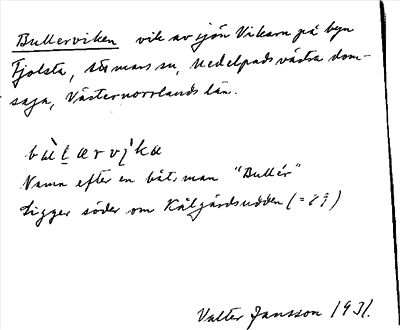 Bullerviken vik av sjön Vikarn på byn
Fjolsta, sn, Medelpads västra dom-
saga, Västernorrlands län.
bu̇lærvi̇ka
Namn efter en båtsman "Bullér"
Ligger söder om Kålgårdsudden
Valter Jansson 1931.